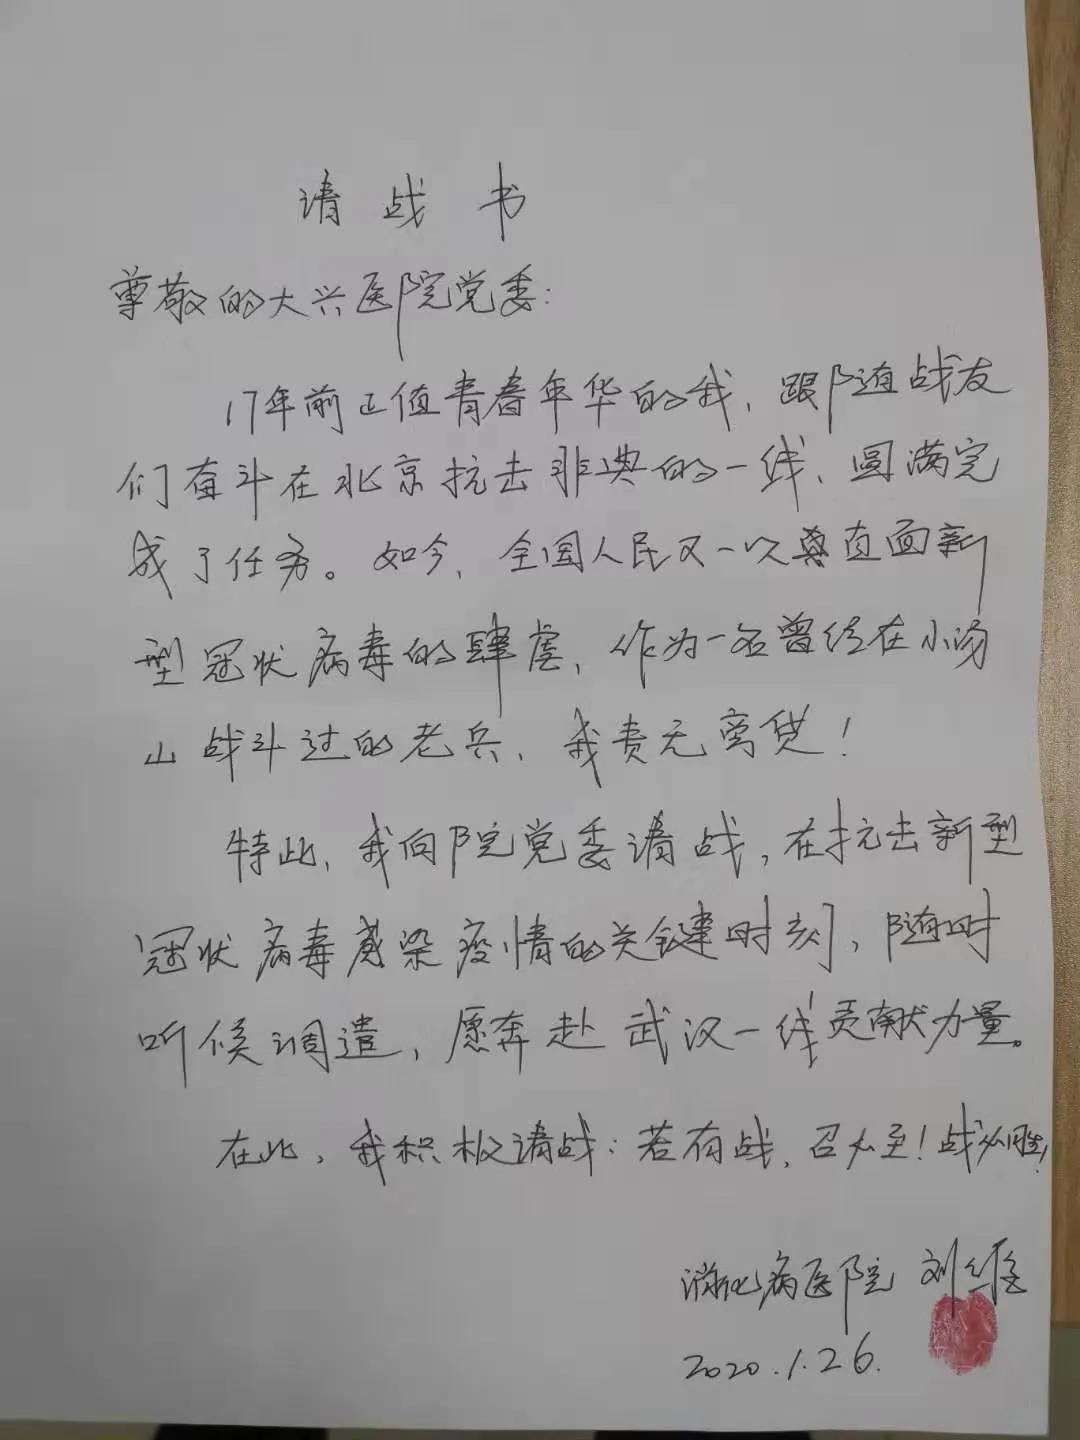 请战书
尊敬的大兴医院党委：
17年前正值青春年华的我，跟随战友
们奋斗在北京抗击非典的一线，圆满完
成了任务。如今，全国人民又一次直面新
型冠状病毒的肆虐，作为一名曾经在小汤
山战斗过的老兵，我责无旁贷！
特此，我向院党委请战，在抗击新型
冠状病毒感染疫情的关键时刻，随时
听候调遣，愿奔赴武汉一线贡献力量。
在此，我积极请战：若有战，召必至！战必胜！
消化病医院 刘
2020.1.26.